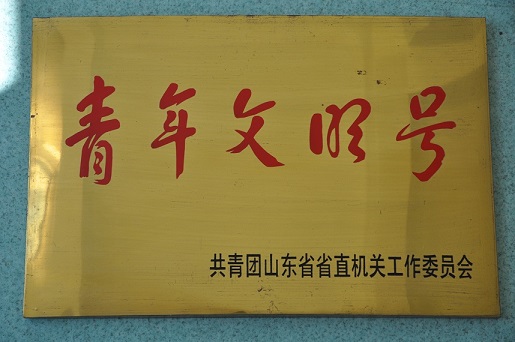 青年文明号
共青团山东省省直机关工作委员会